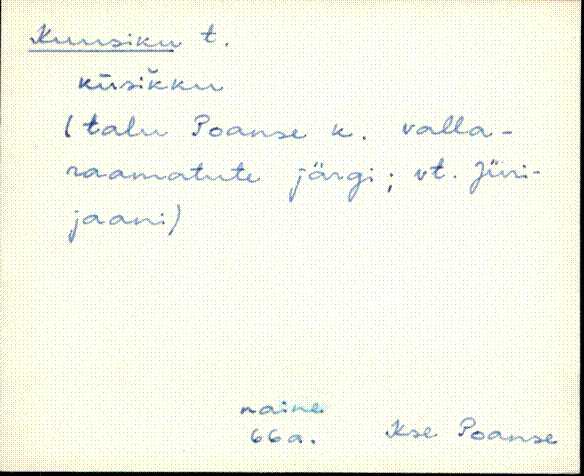 Kuusiku t.
kūsikku
(talu Poanse k. valla-
raamatute järgi; vt. Jüri-
jaani)
naine
66a. Kse Poanse